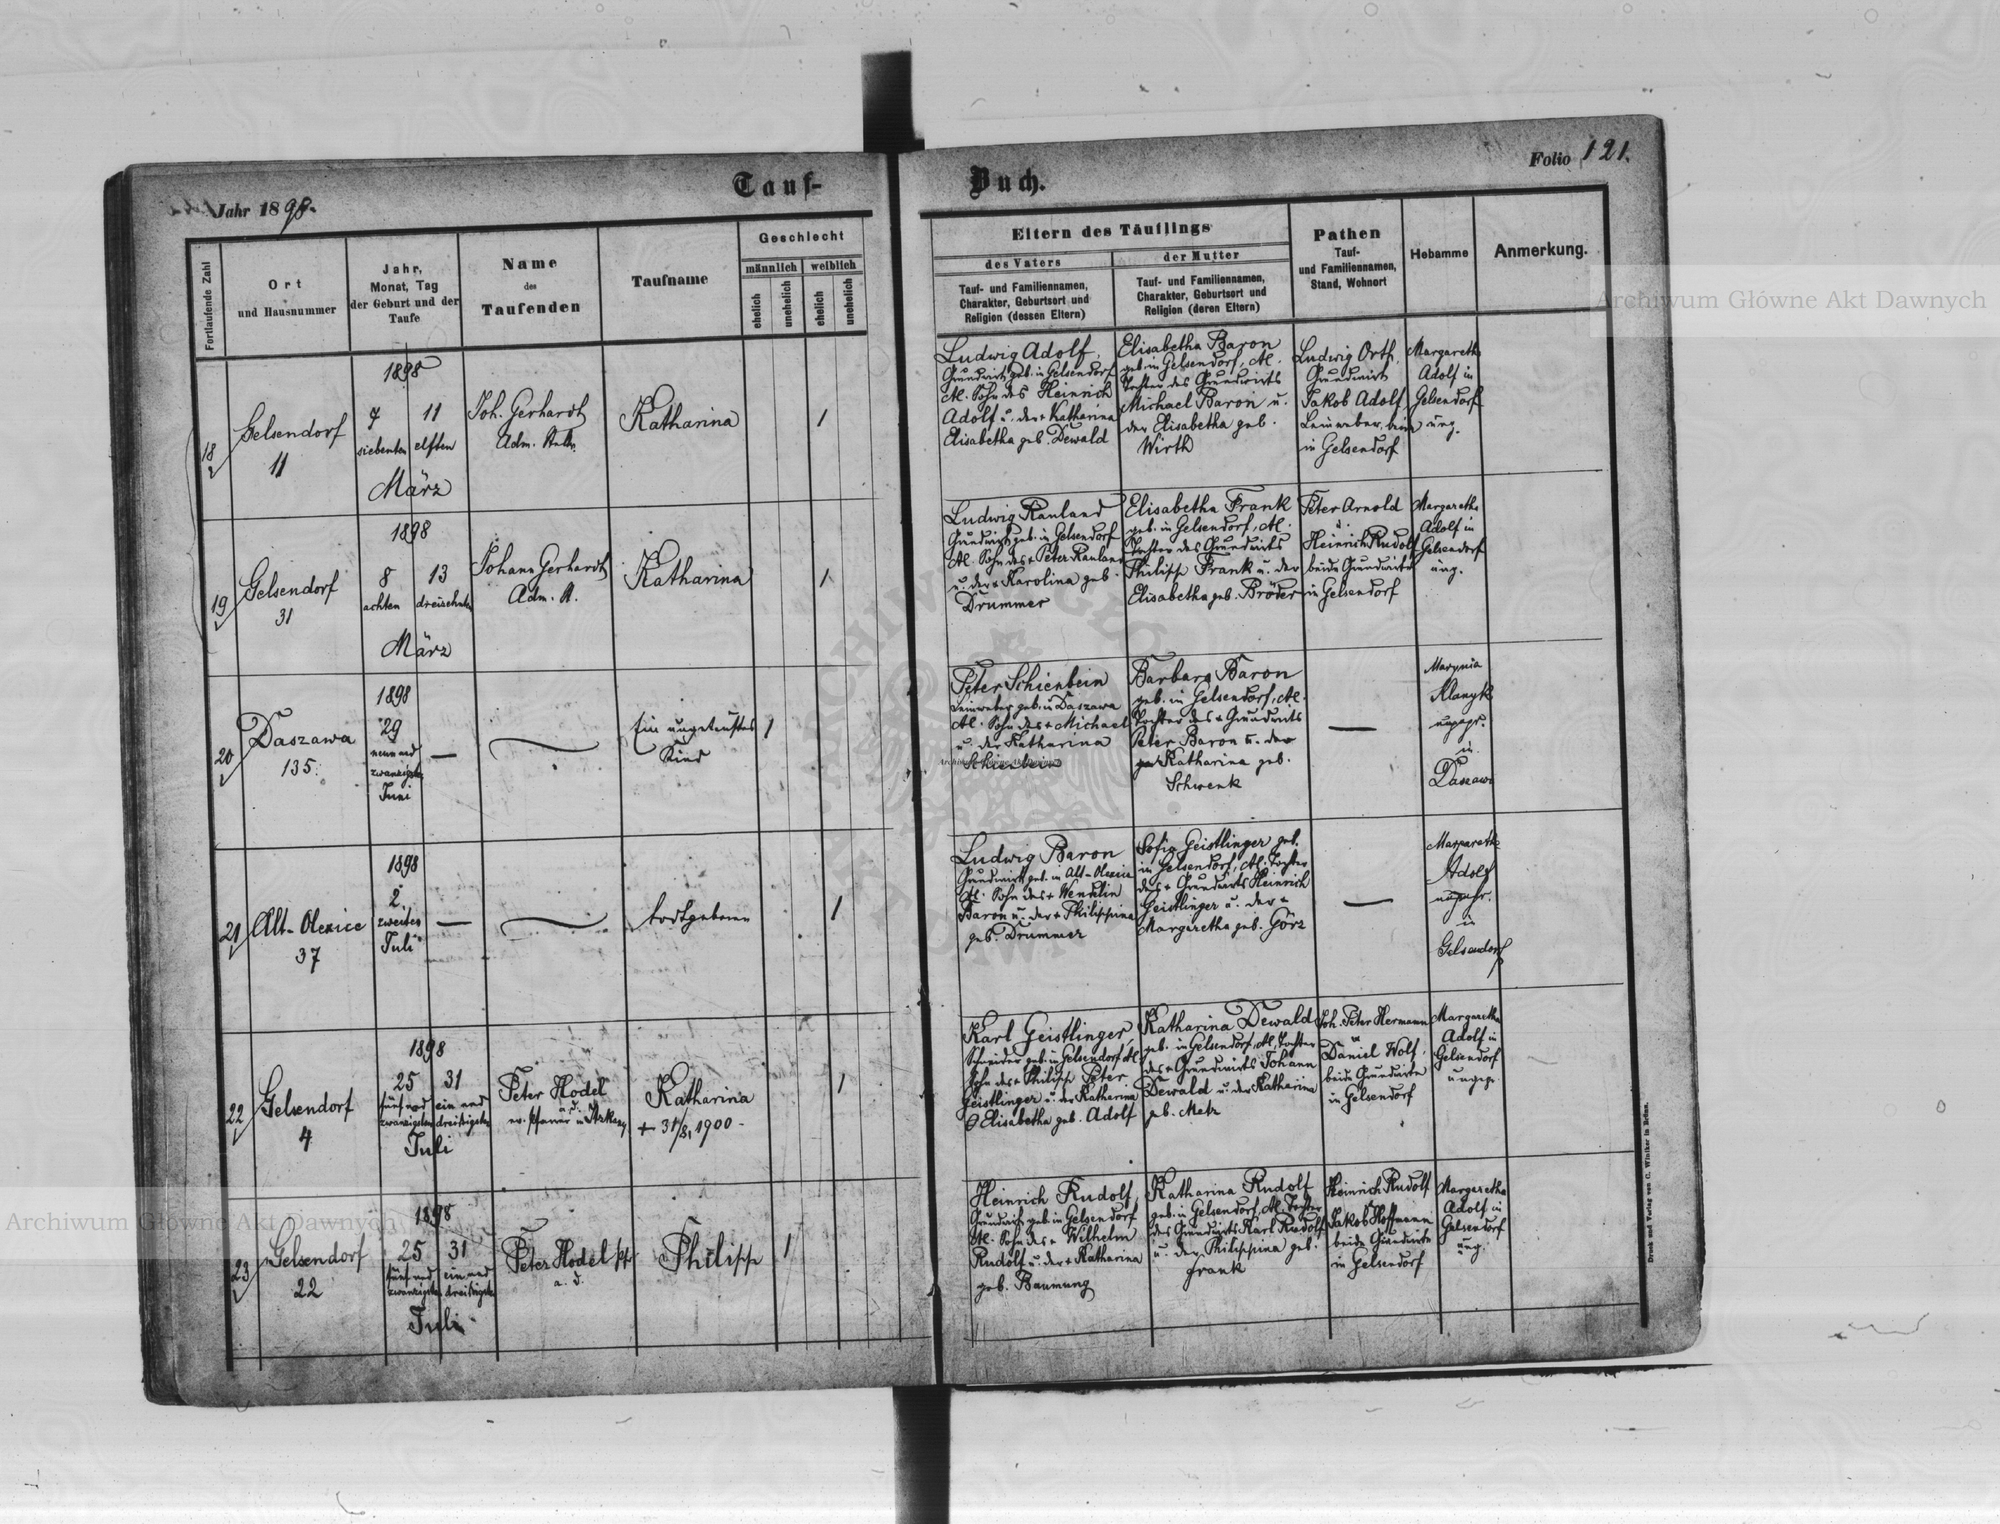 Tauf-
Buch.
Folio 121.
Jahr 1898.
Fortlaufende Zahl
Ort
und Hausnummer
Jahr,
Monat, Tag
der Geburt und der
Taufe
Name
des
Taufenden
Taufname
Geschlecht
männlich
weiblich
ehelich
unehelich
ehelich
unehelich
Eltern des Täuflings
des Vaters
Tauf- und Familiennamen,
Charakter, Geburtsort und
Religion (dessen Eltern)
der Mutter
Tauf- und Familiennamen,
Charakter, Geburtsort und
Religion (deren Eltern)
Pathen
Tauf-
und Familiennamen,
Stand, Wohnort
Hebamme
Anmerkung.
18
Gelsendorf
11
1898
7 11
siebenten elften
März
Joh. Gerhardt
Adm.
Katharina
1
Ludwig Adolf,
Grundwirt geb. in Gelsendorf
Sohn des Heinrich
Adolf u. der + Katharina
Elisabetha geb. Dewald
Elisabetha Baron
geb. in Gelsendorf,
Tochter des Grundwirts
Michael Baron u.
der Elisabetha geb.
Wirth
Ludwig Orth,
Grundwirt
Jakob Adolf
Leinweber, beide
in Gelsendorf
Margareth
Adolf in
Gelsendorf
ung.
19
Gelsendorf
31
1898
8 13
achten dreizehnten
März
Johann Gerhardt
Adm. A.
Katharina
1
Ludwig Rauland
Grundwirt geb. in Gelsendorf
Sohn des + Peter Rauland
u. der + Karolina geb.
Drummer
Elisabetha Frank
geb. in Gelsendorf,
Tochter des Grundwirts
Philipp Frank u. der
Elisabetha geb. Bröder
Peter Arnold
u.
Heinrich Rudolf
beide Grundwirte
in Gelsendorf
Margaretha
Adolf in
Gelsendorf
ung.
20
Daszawa
135.
1898
29
neun und
zwanzigsten
Juni
Ein ungetauftes
Kind
1
Peter Schienbein
Leinweber geb. in Daszawa
Sohn des + Michael
u. der Katharina
Schienbein
Barbara Baron
geb. in Gelsendorf,
Tochter des + Grundwirts
Peter Baron u. der
Katharina geb.
Schwenk
Marynia
ungepr.
in
Daszawa
21
Alt-Olexice
37
1898
2.
zweiten
Juli
todtgeboren
1
Ludwig Baron
Grundwirt geb. in Alt-Olexice
Sohn des + Wendelin
Baron u. der + Philippina
geb. Drummer
Sofia Geistlinger geb.
in Gelsendorf, Tochter
des + Grundwirts Heinrich
Geistlinger u. der +
Margaretha geb. Görz
Margareth
Adolf
ungepr.
in
Gelsendorf
22
Gelsendorf
4
1898
25 31
fünf und ein und
zwanzigsten dreißigsten
Juli
Peter Hodel
a. d.
ev. Pfarrer in
Katharina
+ 31/8, 1900.
1
Karl Geistlinger,
Schneider geb. in Gelsendorf
Sohn des + Philipp Peter
Geistlinger u. der Katharina
Elisabetha geb. Adolf
Katharina Dewald
geb. in Gelsendorf, Tochter
des + Grundwirts Johann
Dewald u. der Katharina
geb. Metz
Joh. Peter Hermann
u
Daniel Wolf,
beide Grundwirte
in Gelsendorf
Margaretha
Adolf in
Gelsendorf
ungepr.
23
Gelsendorf
22
1898
25 31
fünf und ein und
zwanzigsten dreißigsten
Juli
Peter Hodel
a. d.
Philipp
1
Heinrich Rudolf,
Grundwirt geb. in Gelsendorf
Sohn des + Wilhelm
Rudolf u. der + Katharina
geb. Baumung
Katharina Rudolf
geb. in Gelsendorf, Tochter
des Grundwirts Karl Rudolf
u. der Philippina geb.
Frank
Heinrich Rudolf
Jakob Hoffmann
beide Grundwirte
in Gelsendorf
Margaretha
Adolf in
Gelsendorf
ung.
Druck und Verlag von C. Winiker in Brünn.
Archiwum Główne Akt Dawnych
Archiwum Główne Akt Dawnych
Archiwum Główne Akt Dawnych